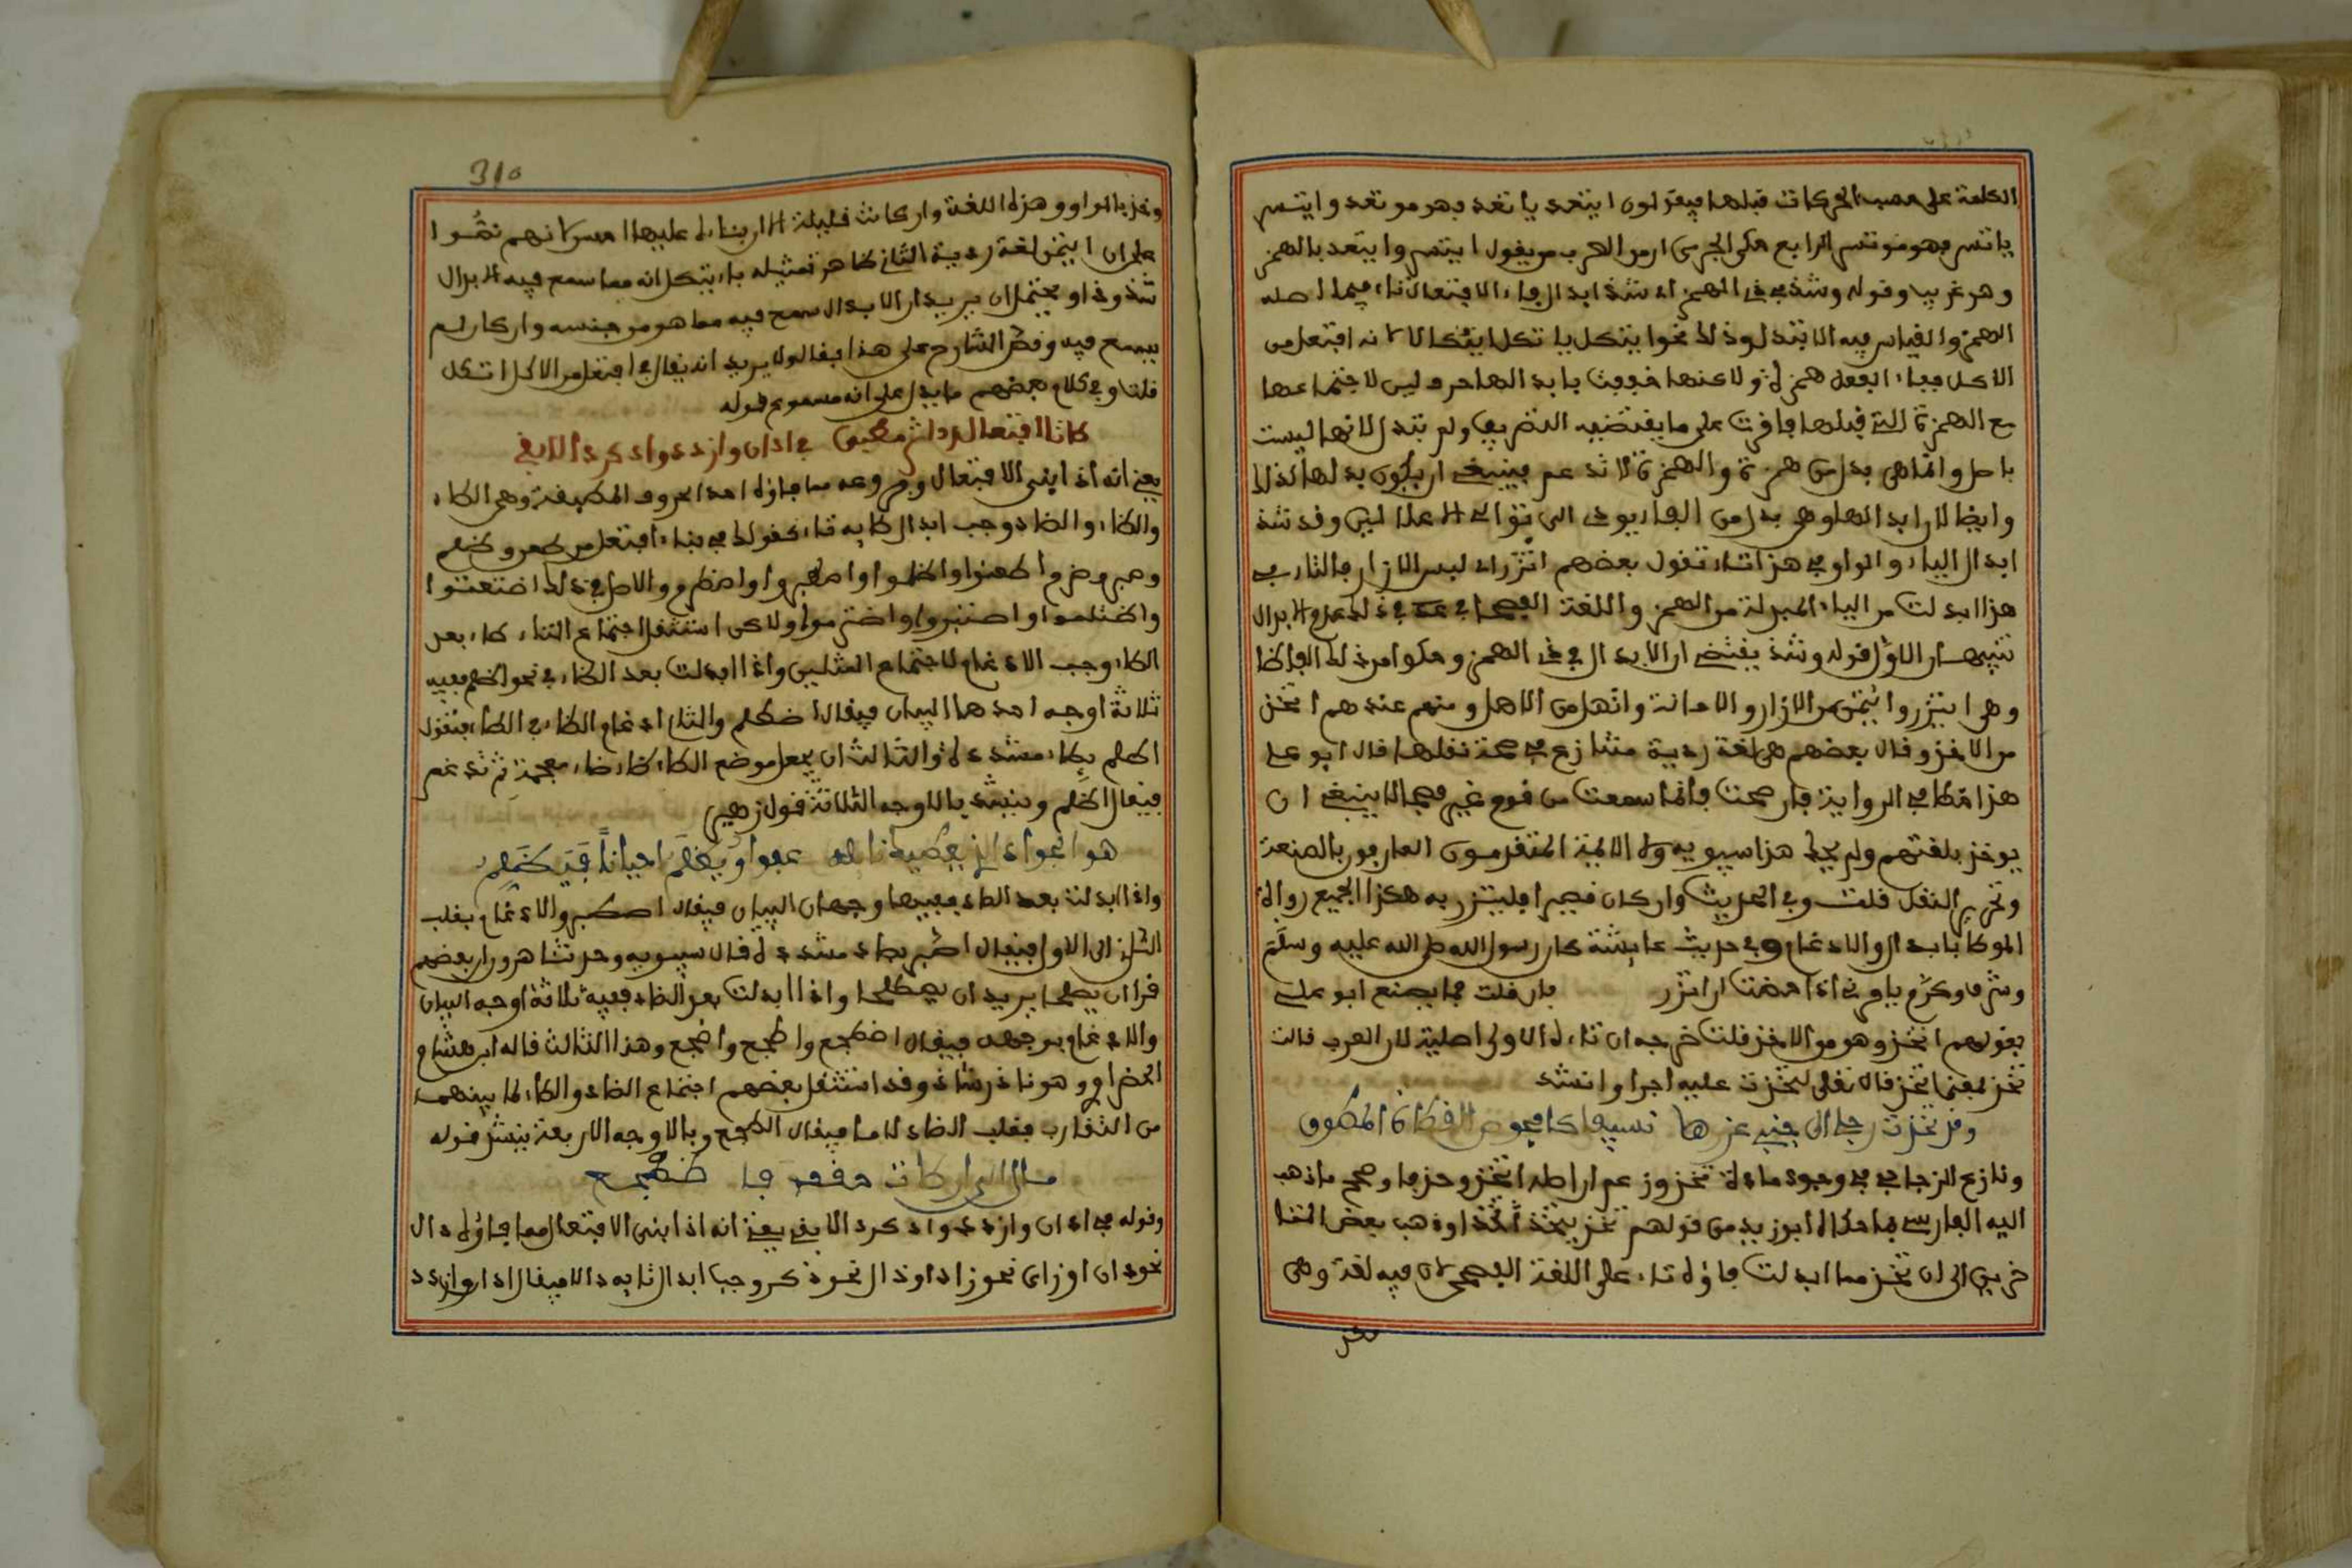 الكلمة على حسب الحركات قبلها فيقولون ايتعد ياتعد فهو موتعد وايتسر
ياتسر فهو موتسر الرابع حكى الجرمي ان من العرب من يقول ائتسر وائتعد بالهمز
وهو غريب وقوله وشذ في ذي الهمز اي شذ ابدال فاء الافتعال تاء فيما اصله
الهمز والقياس فيه الا تبدل وذلك نحو ايتكل ياتكل ايتكالا لانه افتعل من
الاكل ففاء الفعل همزة ولاكنها خففت بابدالها حرف لين لاجتماعها
مع الهمزة التي قبلها فاقرت على ما يقتضيه التصريف ولم تبدل لانها ليست
باصل وانما هي بدل من همزة والهمزة لا تدغم فينبغي ان يكون بدلها كذلك
وايضا لان ابدالها وهي بدل من الفاء يودي الى توالي الاعلالين وقد شذ
ابدال الياء والواو في هذا تاء تقول بعضهم اتزر اي لبس الازار فالتاء في
هذا ابدلت من الياء المبدلة من الهمز واللغة الفصحى في ذلك عدم الابدال
تنبيهان الاول قوله وشذ يقتضي ان الابدال في ذي الهمز وحكوا من ذلك الفاظا
وهي اتزر واتمن من الازار والامانة واتهل من الاهل ومنهم عندهم اتخذ
من الاخذ وقال بعضهم هي لغة ردية متنازع في صحة نقلها قال ابو علي
هذا خطا في الرواية فان صحت فانما سمعت من قوم غير فصحا لا ينبغي ان
يوخذ بلغتهم ولم يحك هذا سيبويه ولا الائمة المتقدمون العارفون بالصنعة
وتحرير النقل قلت وفي الحديث وان كان قصيرا فليتزر به هكذا الجميع رواة
الموطا بابدال والادغام وفي حديث عايشة كان رسول الله صلى الله عليه وسلم
يامرني اذا حضت ان اتزر فان قلت فما يصنع ابو علي
بقولهم اتخذ وهو من الاخذ قلت خرجه ان تاءه الاولى اصلية لان العرب قالت
تخذ بمعنى اتخذ قال تعلى لتخذت عليه اجرا وانشد
وقد تخذت رجلي الى جنب غرزها نسيفا كافحوص القطاة المطرق
ونازع الزجاجي في وجود مادة تخذ وزعم ان اصله اتخذ وحذف وصحح ما ذهب
اليه الفارسي بما حكاه ابو زيد من قولهم تخذ يتخذ تخذا وذهب بعض المتا
خرين الى ان تخذ مما ابدلت فاؤه تاء على اللغة الفصحى لان فيه لغة وهي
وخذ
310
وخذ بالواو وهذه اللغة وان كانت قليلة الا ان بناءه عليها احسن لانهم نصوا
على ان ائتمن لغة ردية الثاني ظاهر تمثيله بايتكل انه مما سمع فيه الابدال
شذوذا ويحتمل ان يريد ان الابدال سمع فيه مما هو من جنسه وان كان لم
يسمع فيه ونص الشارح على هذا فقال ولا يريد انه يقال في افتعل من الاكل اتكل
قلت وفي كلام بعضهم ما يدل على انه مسموع قوله
طا تا افتعال رد اثر مطبق في ادان وازدد وادكر دالا بقي
يعني انه اذا بني الافتعال وفروعه مما فاؤه احد الحروف المطبقة وهي الطاء
والظاء والصاد وجب ابدال تايه طاء كقولك في بناء افتعل من طعن وظلم
وصبر وضرم اطعنوا واظلموا واصطبروا واضطرم والاصل في ذلك اطتعنوا
واظتلموا واصتبروا واضترموا ولاكن استثقل اجتماع التاء بعد
الطاء وجب الادغام لاجتماع المثلين واذا ابدلت بعد الظاء في نحو اظلم ففيه
ثلاثة اوجه احدها البيان فيقال اظطلم والثاني ادغام الظاء في الطاء فتقول
اطلم بطاء مشددة والثالث ان يجعل موضع الطاء ظاء معجمة ثم تدغم
فيقال اظلم وينشد بالاوجه الثلاثة قول زهير
هو الجواد الذي يعطيك نايله عفوا ويظلم احيانا فيظطلم
واذا ابدلت بعد الصاد ففيها وجهان البيان فيقال اصطبر والادغام بقلب
الثاني الى الاول فيقال اصبر بصاد مشددة قال سيبويه وحدثنا هرون ان بعضهم
قرا ان يصلحا يريد ان يصطلحا واذا ابدلت بعد الضاد ففيه ثلاثة اوجه البيان
والادغام بوجهيه فيقال اضطجع واطجع واضجع وهذا الثالث قاله ابن هشام
الخضراوي وهو نادر شاذ وقد استثقل بعضهم اجتماع الضاد والطاء لما بينهما
من التقارب فقلب الضاد لاما فيقال الطجع وبالاوجه الاربعة ينشد قوله
مال الى ارطاة حقف فاضطجع
وقوله في ادان وازدد وادكر دالا بقي يعني انه اذا بني الافتعال مما فاؤه دال
نحو دان او زاي نحو زاد او ذال نحو ذكر وجب ابدال تايه دالا فيقال ادان وازدد